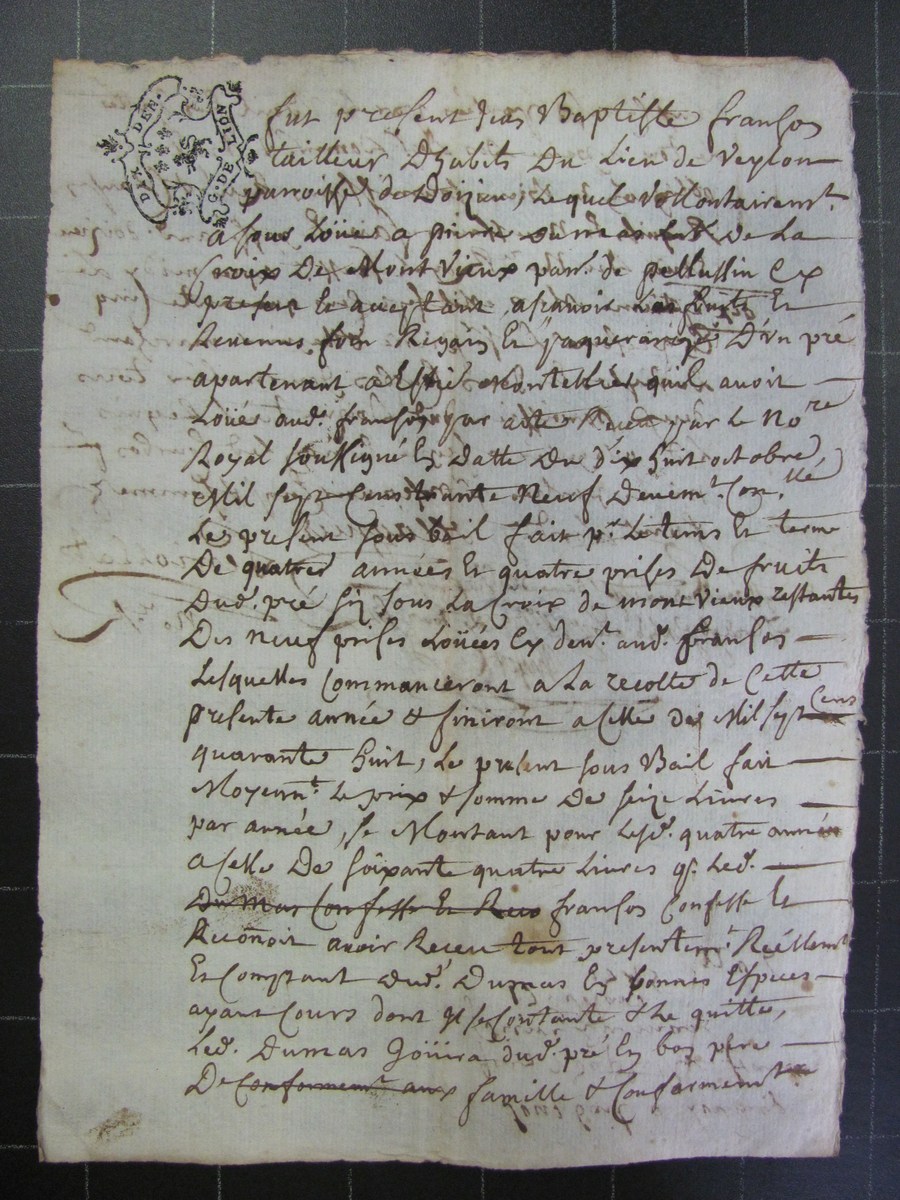 DIX DEN.
G. DE LION
fut present Jean Baptiste fransois
tailleur Dhabits Du Lieu de Veylon
parroisse de Doizieu, Lequel vollontairemt.
a sous Loüé a pierre dumas De La
Croix De Mont Vieux parr. de pellussin Ex
present Et acceptant ascavoir Les fruits Et
Revenus foin Regain Et D'un pré
apartenant a quil avoit
Loüé aud. fransois par acte Receu par Le Nore
Royal soussigné En Datte Du dix huit octobre
Mil sept Cens trante Neuf Devemt. Con.llé
Le present sous bail fait pr. Le tems Et terme
De quatre années Et quatre prises De fruits
Dud. pré sis sous La Croix de mont vieux restantes
Des neuf prises Loüées Ex devt. aud. fransois
Lesquelles Commanceront a La recolte de Cette
presente année & finiront a celle de Mil sept Cens
quarante huit, Le present sous Bail fait
Moyent. Le prix & somme De seize Livres
par année, se Montant pour Lesd. quatre années
a celle De soixante quatre Livres q. Led.
Dumas Confesse Et Reco fransois Confesse Et
Reconoit avoir Receu tout presentemt. Réellemt
Et Comptant dud. Dumas En bonnes Especes
ayant Cours dont Il se Contante & Le quitte,
Led. Dumas Joüira dud. pré En bon pere
De Conformemt. aux famille & Conformement